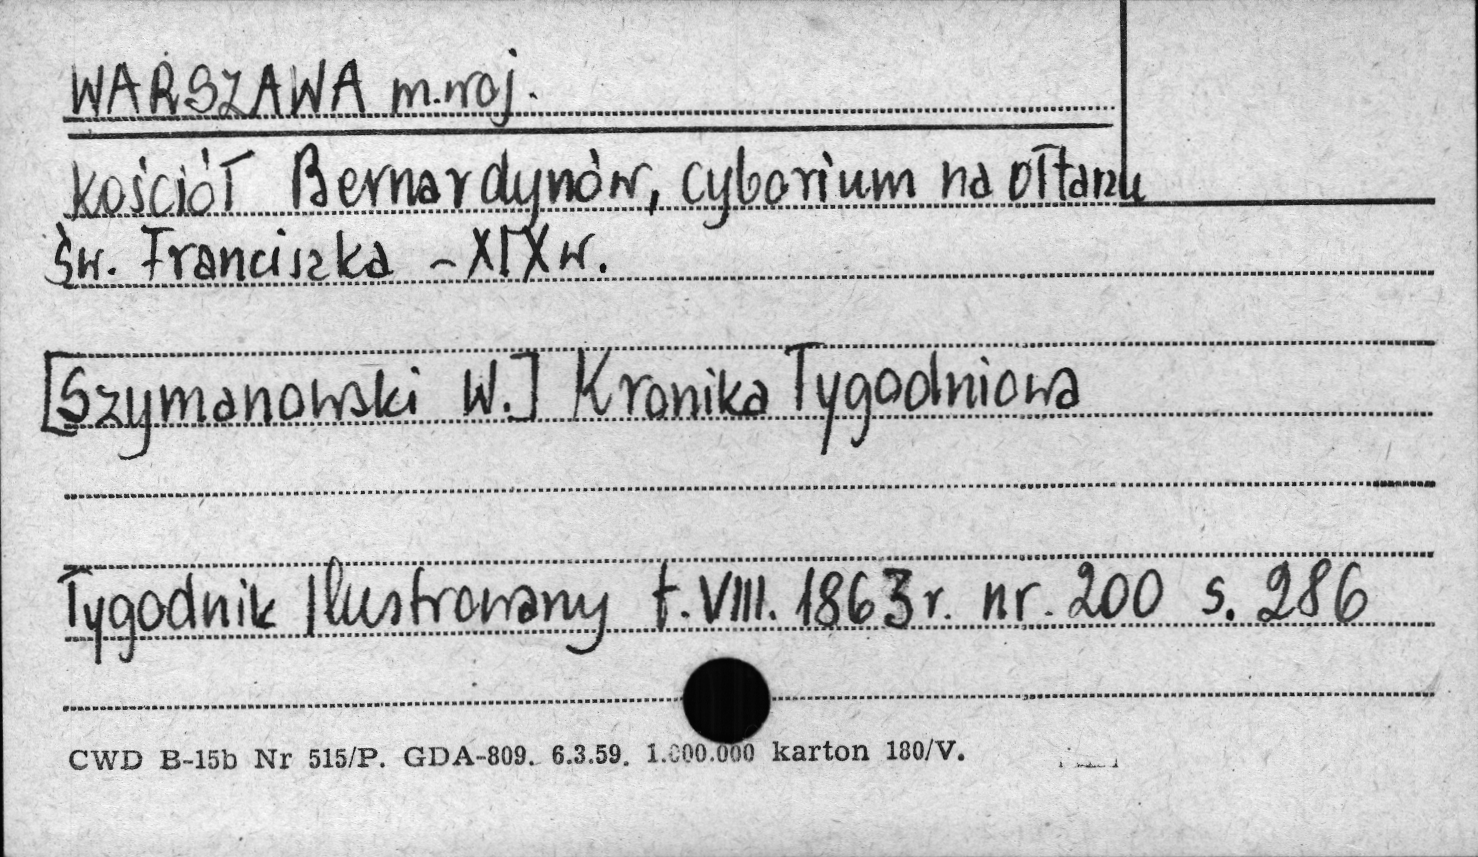 WARSZAWA m.woj.
kościół Bernardynów, cyborium na ołtarzu
Św. Franciszka – XIX w.
[Szymanowski W.] Kronika Tygodniowa
Tygodnik Ilustrowany t. VIII. 1863 r. nr. 200 s. 286
CWD B-15b Nr 515/P. GDA-809. 6.3.59. 1.000.000 karton 180/V.